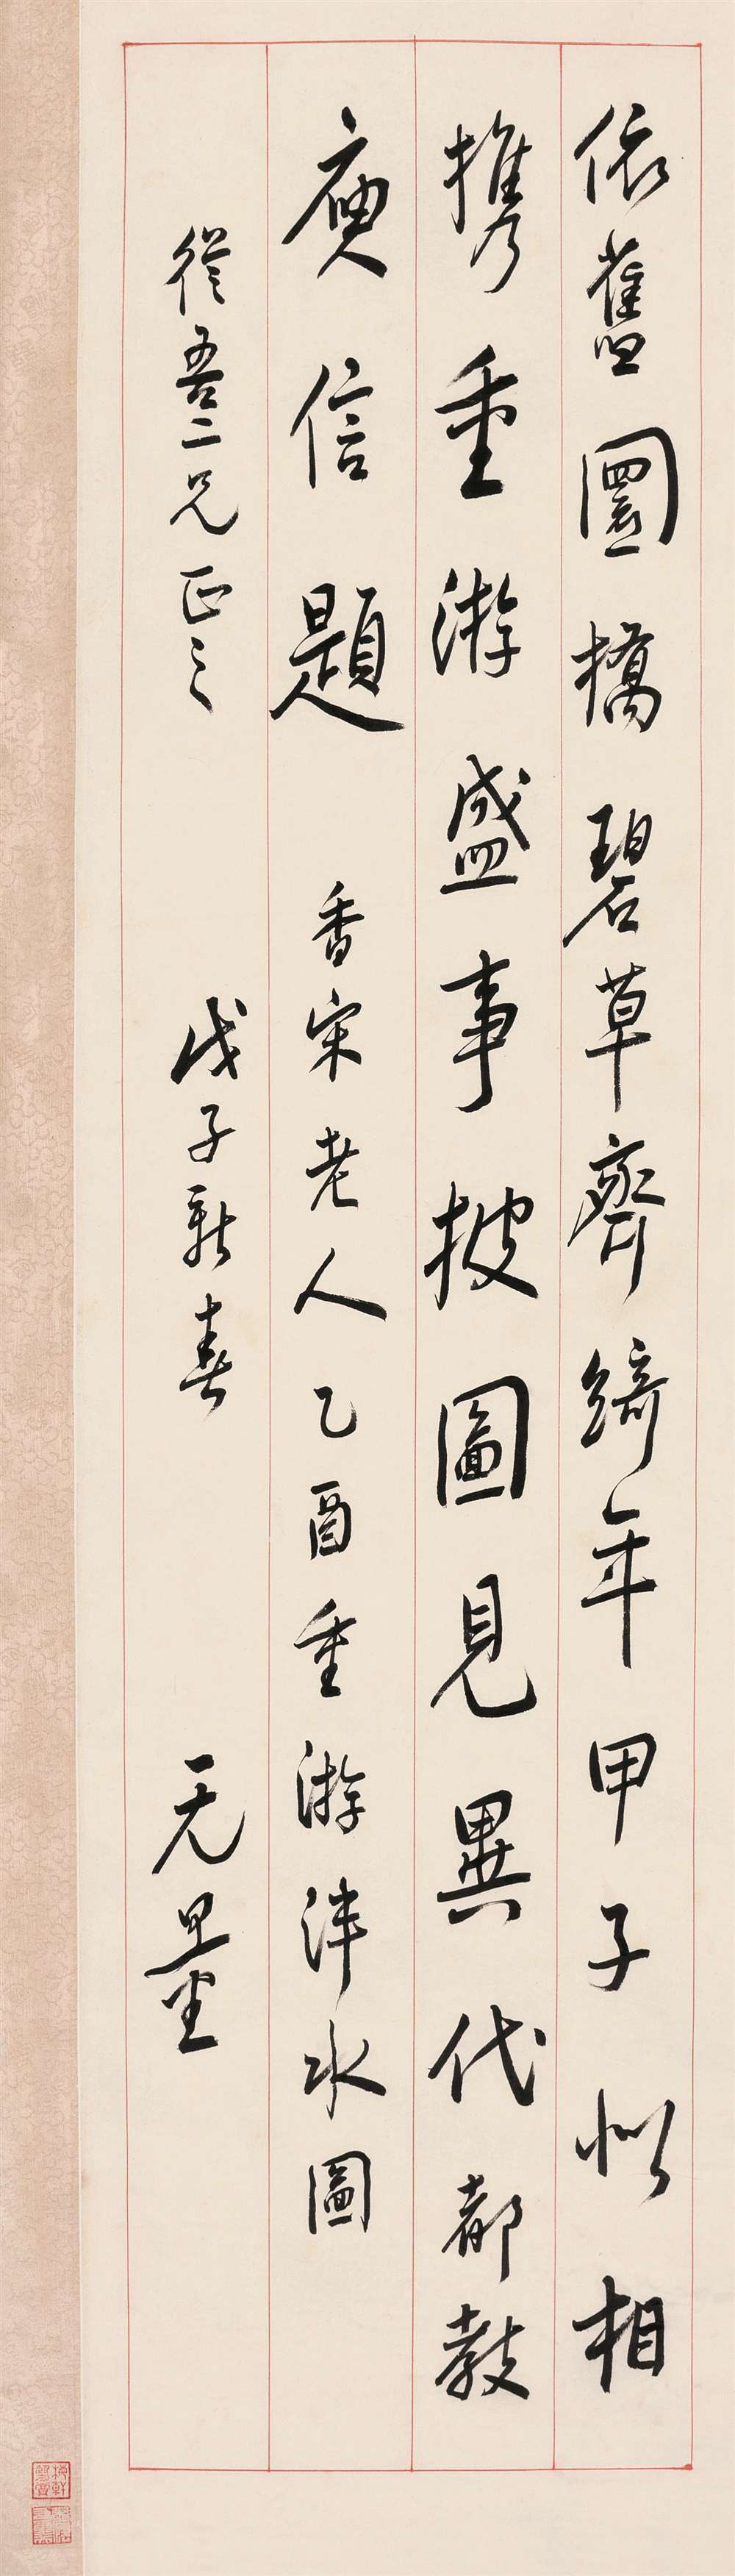 依舊圜橋碧草齊綺年甲子似相
攜乃重游盛事披圖見異代都教
庾信題 香宋老人乙酉重游泮水圖
從吾二兄正之 戊子新春 无量